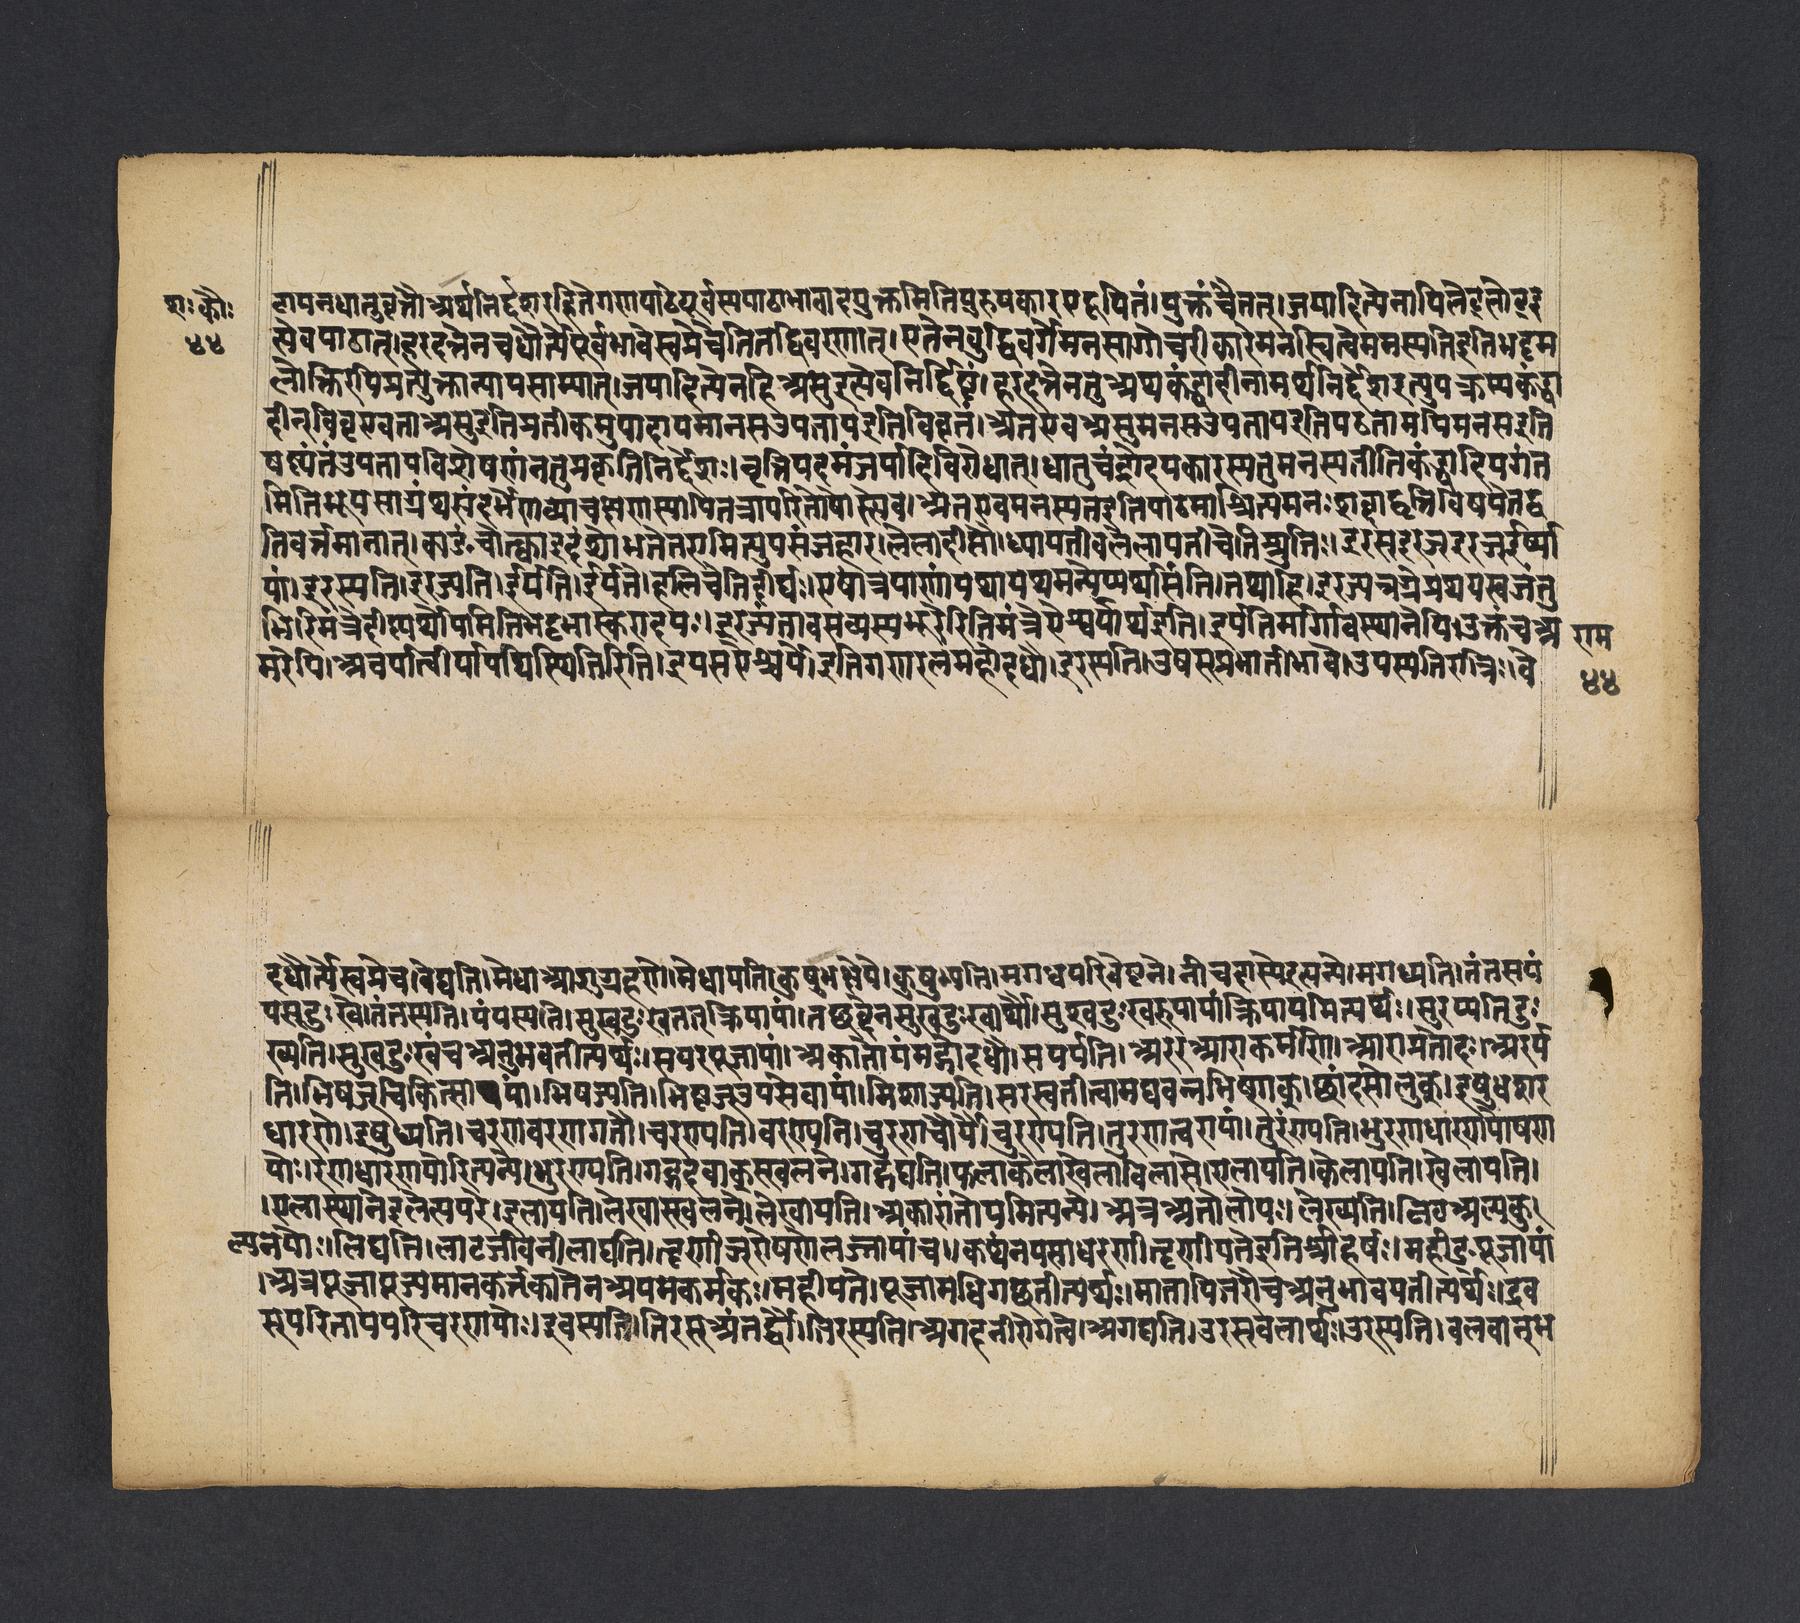 श॰कौ॰
४४
टायनधातुवृत्तौअर्थनिर्देशरहितेगणपाठेपूर्वस्यपाठाभावादयुक्तमितिपुरुषकारएदूषितं।युक्तंचैतत्।जपादित्येनापितेइतोइ
त्येवपाठात्।हरदत्तेनचधौर्त्येपूर्वभावेस्वप्नेचेतितद्विवरणात्।एतेनबुद्धिवर्गेमनसागोचरीकारेमनस्चित्तेमनस्यतिइतिभट्टम
ल्लोक्तिरपिप्रत्युक्तान्यायसाम्यात्।जयादित्येनहिअसुइत्येवनिर्दिष्टं।हरदत्तेनतुअथकंड्वादीनामर्थनिर्देशइत्युपक्रम्यकंड्वा
दीन्विवृण्वताअसुइतिप्रतीकमुपादायमानसउपतापइतिविवृतं।अतएवअसुमनसउपतापइतिपठतामपिमनसइति
षष्ठ्यंतंउपतापविशेषणंनतुप्रकृतिनिर्देशः।वृत्तिपदमंजर्यादिविरोधात्।धातुचंद्रोदयकारस्यतुमनस्यतीतिकंड्वादिपगंत
मितिभूयसाग्रंथसंदर्भेणन्यायंचप्रमाणस्थापितत्रापरितोषास्त्येव।अतएवमनस्यतइतिपाठमाश्रित्यमनःशब्दाद्वृत्तिविषयेतद्व
तिवर्त्तमानात्।क्यङंचोत्क्वाइदंग्राभतेतरामित्युपसंजहार।लेलादीप्तौ।ध्यायतीवलेलायतीवेतिश्रुतिः।इरसइरजइरञ्ईर्ष्या
यां।इरस्यति।इरज्यति।ईर्यति।ईर्यते।हलिचेतिदीर्घः।एषांत्रयाणांयथायथमन्येप्यर्थाःसंति।तथाहि।इरज्यन्नग्नेप्रथयस्वजंतु
भिरिमंत्रेदीप्यर्थोयमितिभट्टभास्करादयः।इरज्यंतावसव्यस्यभूरेरितिमंत्रेऐश्वर्यार्थइति।इर्यतिर्मार्गावस्थानेपि।उक्तंचअ
राम
मरेपि।अवर्यात्वीर्यापथिस्थितिरिति।इयसऐश्वर्ये।इतिगणरत्नमहोदधौ।इरस्यति।उषस्प्रभातीभावे।उपस्यतिरात्रिः।वे
४४
दधौर्त्येस्वप्नेच।वेद्यति।मेधाआशुग्रहणे।मेधायति।कुषुभक्षेपे।कुषुभ्यति।मगधपरिवेष्टने।नीचदास्येइत्यन्ये।मगध्यति।तंतसपं
पसदुःखे।तंतस्यति।पंपस्यति।सुखदुःखतत्क्रियायां।तच्छब्देनसुखदुःखार्थौ।सुखदुःखरूपायांक्रियायामित्यर्थः।सुख्यतिदुः
ख्यति।सुखदुःखंचअनुभवतीत्यर्थः।सपरपूजायां।अकांतोयंमहोदधौ।सपर्यति।अररआराकर्मणि।आराप्रतोदः।अरर्य
ति।भिषज्चिकित्सायां।भिषज्यति।भिष्णज्उपसेवायां।भिष्णज्यति।सरस्वतीत्वामघवन्नभिष्णक्।छांदसोलुक्।इषुधशर
धारणे।इषुध्यति।चरणवरणगतौ।चरण्यति।वरण्यति।चुरणचौर्ये।चुरण्यति।तुरणत्वरायां।तुरण्यति।भुरणधारणपोषण
योः।रणधारणयोरित्यन्ये।भुरण्यति।गद्गदवाक्स्खलने।गद्गद्यति।एलाकेलाखेलाविलासे।एलायति।केलायति।खेलायति।
।एलास्थानेइलेत्यपरे।इलायति।लेखास्खलने।लेखायति।अकारांतोयमित्यन्ये।अत्रअतोलोपः।लेख्यति।लिटअल्पकु
त्सनयोः।लिट्यति।लाटजीवने।लाट्यति।हृणीञ्रोषणेलज्जायांच।।कथंनपत्याधरणीहृणीयतेइतिश्रीहर्षः।महीङ्पूजायां
।अत्रपूजापूज्यमानकर्तृकातेनअयमकर्मकः।महीयते।पूजामधिगच्छतीत्यर्थः।मातापितरौचअनुभावयतीत्यर्थः।दुव
सपरितापपरिचरणयोः।दुवस्यति।तिरसअंतर्द्धौ।तिरस्यति।अगदनीरोगत्वे।अगद्यति।उरसबलार्थः।उरस्यति।बलवान्भ